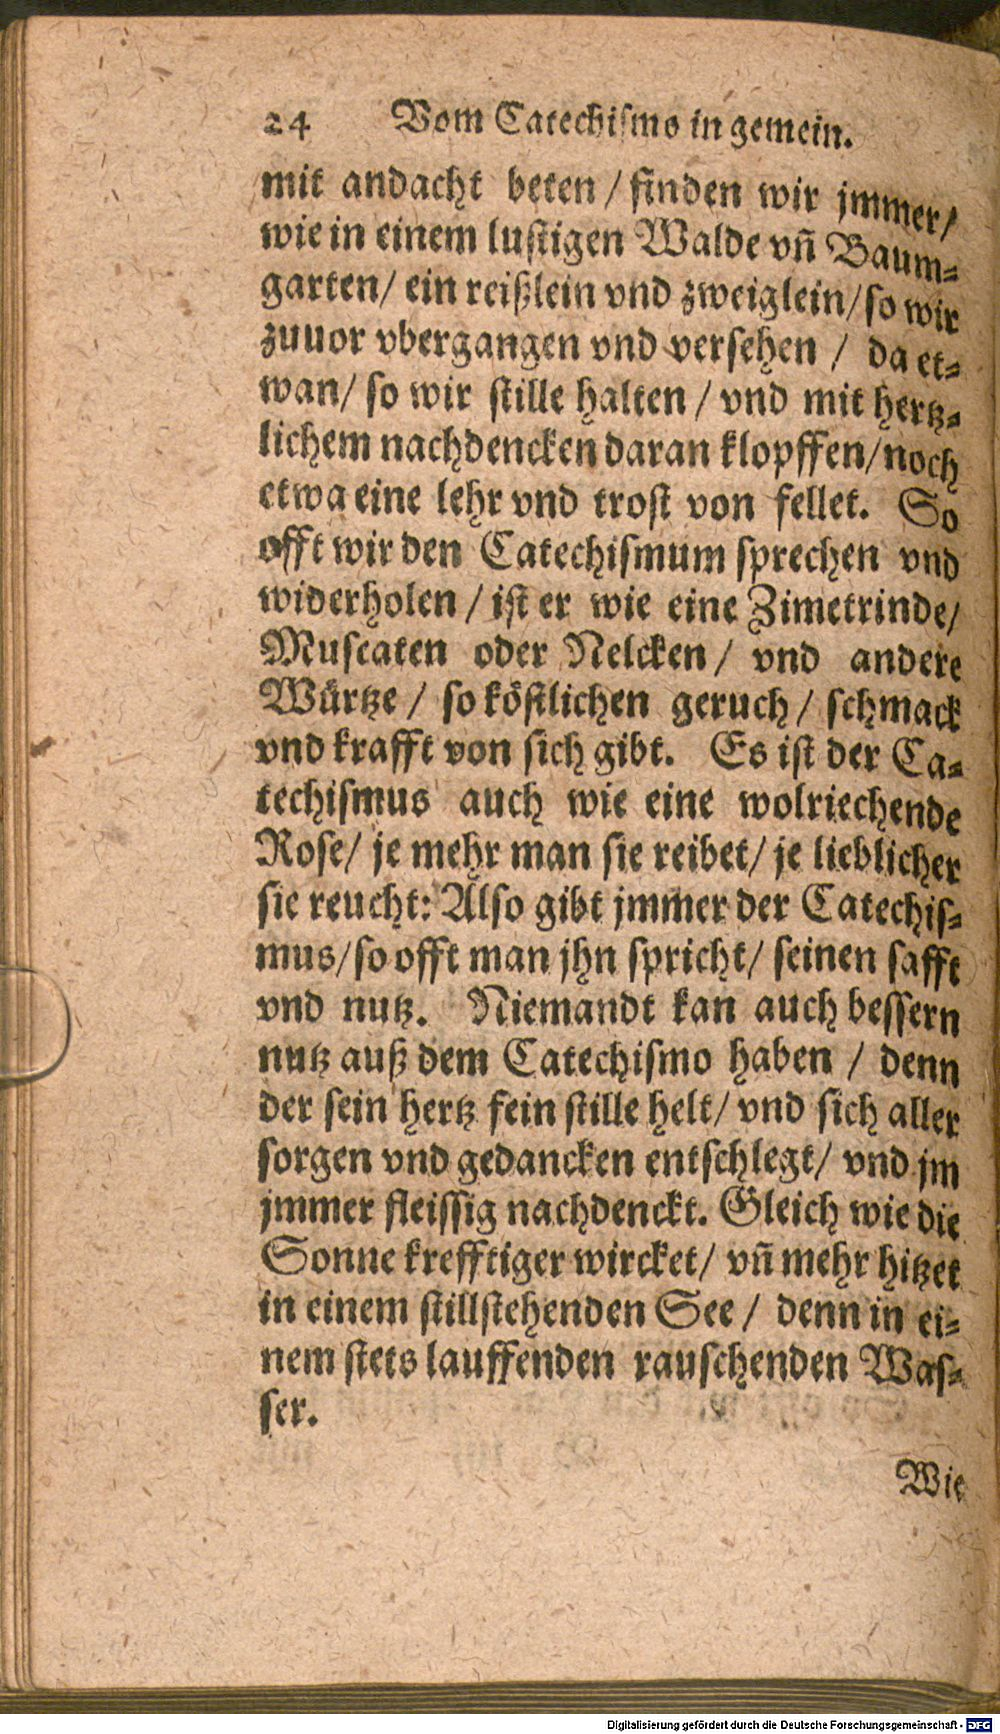 24 Vom Catechismo in gemein.
mit andacht beten / finden wir jmmer /
wie in einem lustigen Walde vñ Baum-
garten / ein reißlein vnd zweiglein / so wir
zuuor vbergangen vnd versehen / da et-
wan / so wir stille halten / vnd mit hertz-
lichem nachdencken daran klopffen / noch
etwa eine lehr vnd trost von fellet. So
offt wir den Catechismum sprechen vnd
widerholen / ist er wie eine Zimetrinde /
Muscaten oder Nelcken / vnd andere
Würtze / so köstlichen geruch / schmack
vnd krafft von sich gibt. Es ist der Ca-
techismus auch wie eine wolriechende
Rose / je mehr man sie reibet / je lieblicher
sie reucht: Also gibt jmmer der Catechis-
mus / so offt man jhn spricht / seinen safft
vnd nutz. Niemandt kan auch bessern
nutz auß dem Catechismo haben / denn
der sein hertz fein stille helt / vnd sich aller
sorgen vnd gedancken entschlegt / vnd jm
jmmer fleissig nachdenckt. Gleich wie die
Sonne krefftiger wircket / vñ mehr hitzet
in einem stillstehenden See / denn in ei-
nem stets lauffenden rauschenden Was-
ser.
Wie
Digitalisierung gefördert durch die Deutsche Forschungsgemeinschaft - DFG